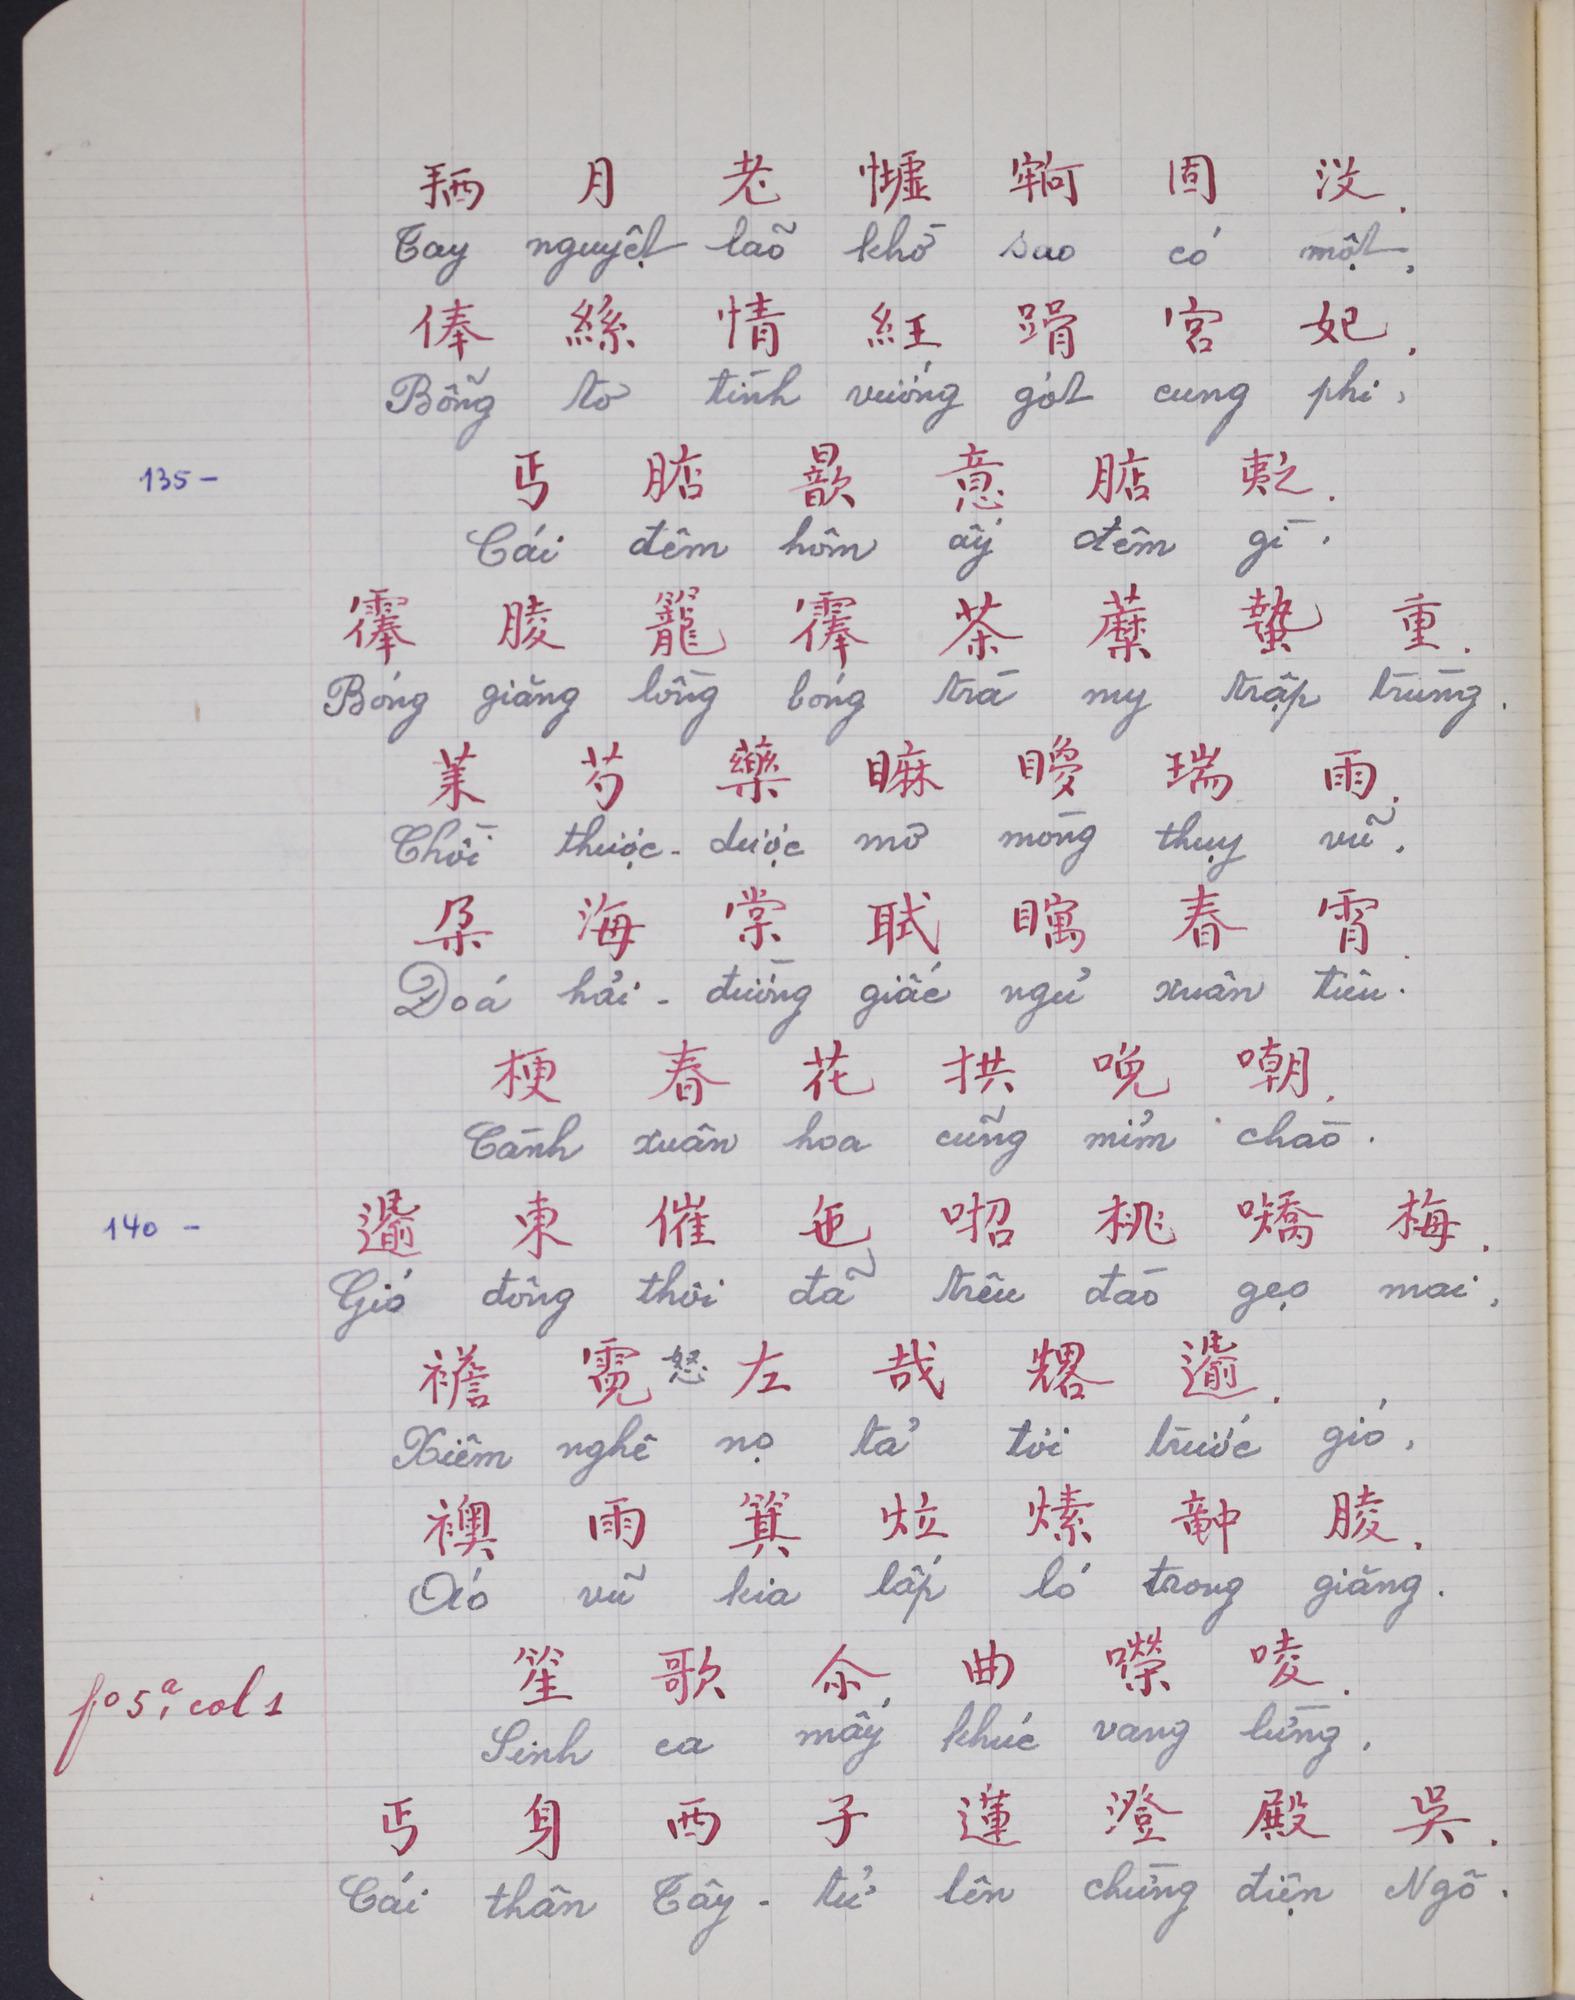 月老固没.
Tay nguyệt laõ khờ sao có một,
俸絲情紅𨃴宮妃.
Bỗng tơ tình vướng gót cung phi,
135 - 丐𣎀歆意𣎀之.
Cái đêm hôm ấy đêm gì.
𩃳𦝄籠𩃳茶蘼蟄重.
Bóng giăng lồng bóng trà my trập trùng.
芍藥𥊚瑞雨.
Chồi thược-dược mơ mòng thụy vũ.
朶海棠𥄬春宵.
Đoá hải-đường giấc ngủ xuân tiêu.
梗春花拱𠸍嘲.
Cành xuân hoa cũng mỉm chào.
140 - 𨘱東催㐌𠰉桃嘺梅.
Gió đông thôi đã trêu đào gẹo mai,
襜霓怒左哉𠓀𨘱.
Xiêm nghê nọ tả tơi trước gió,
襖雨箕𤇥𤍇𥪝𦝄.
Aó vũ kia lấp ló trong giăng.
fº 5ª, col 1
笙歌尒曲嶸唛.
Sinh ca mấy khúc vang lừng,
丐身西子蓮澄殿吳.
Cái thân Tây-tử lên chừng điện Ngô.